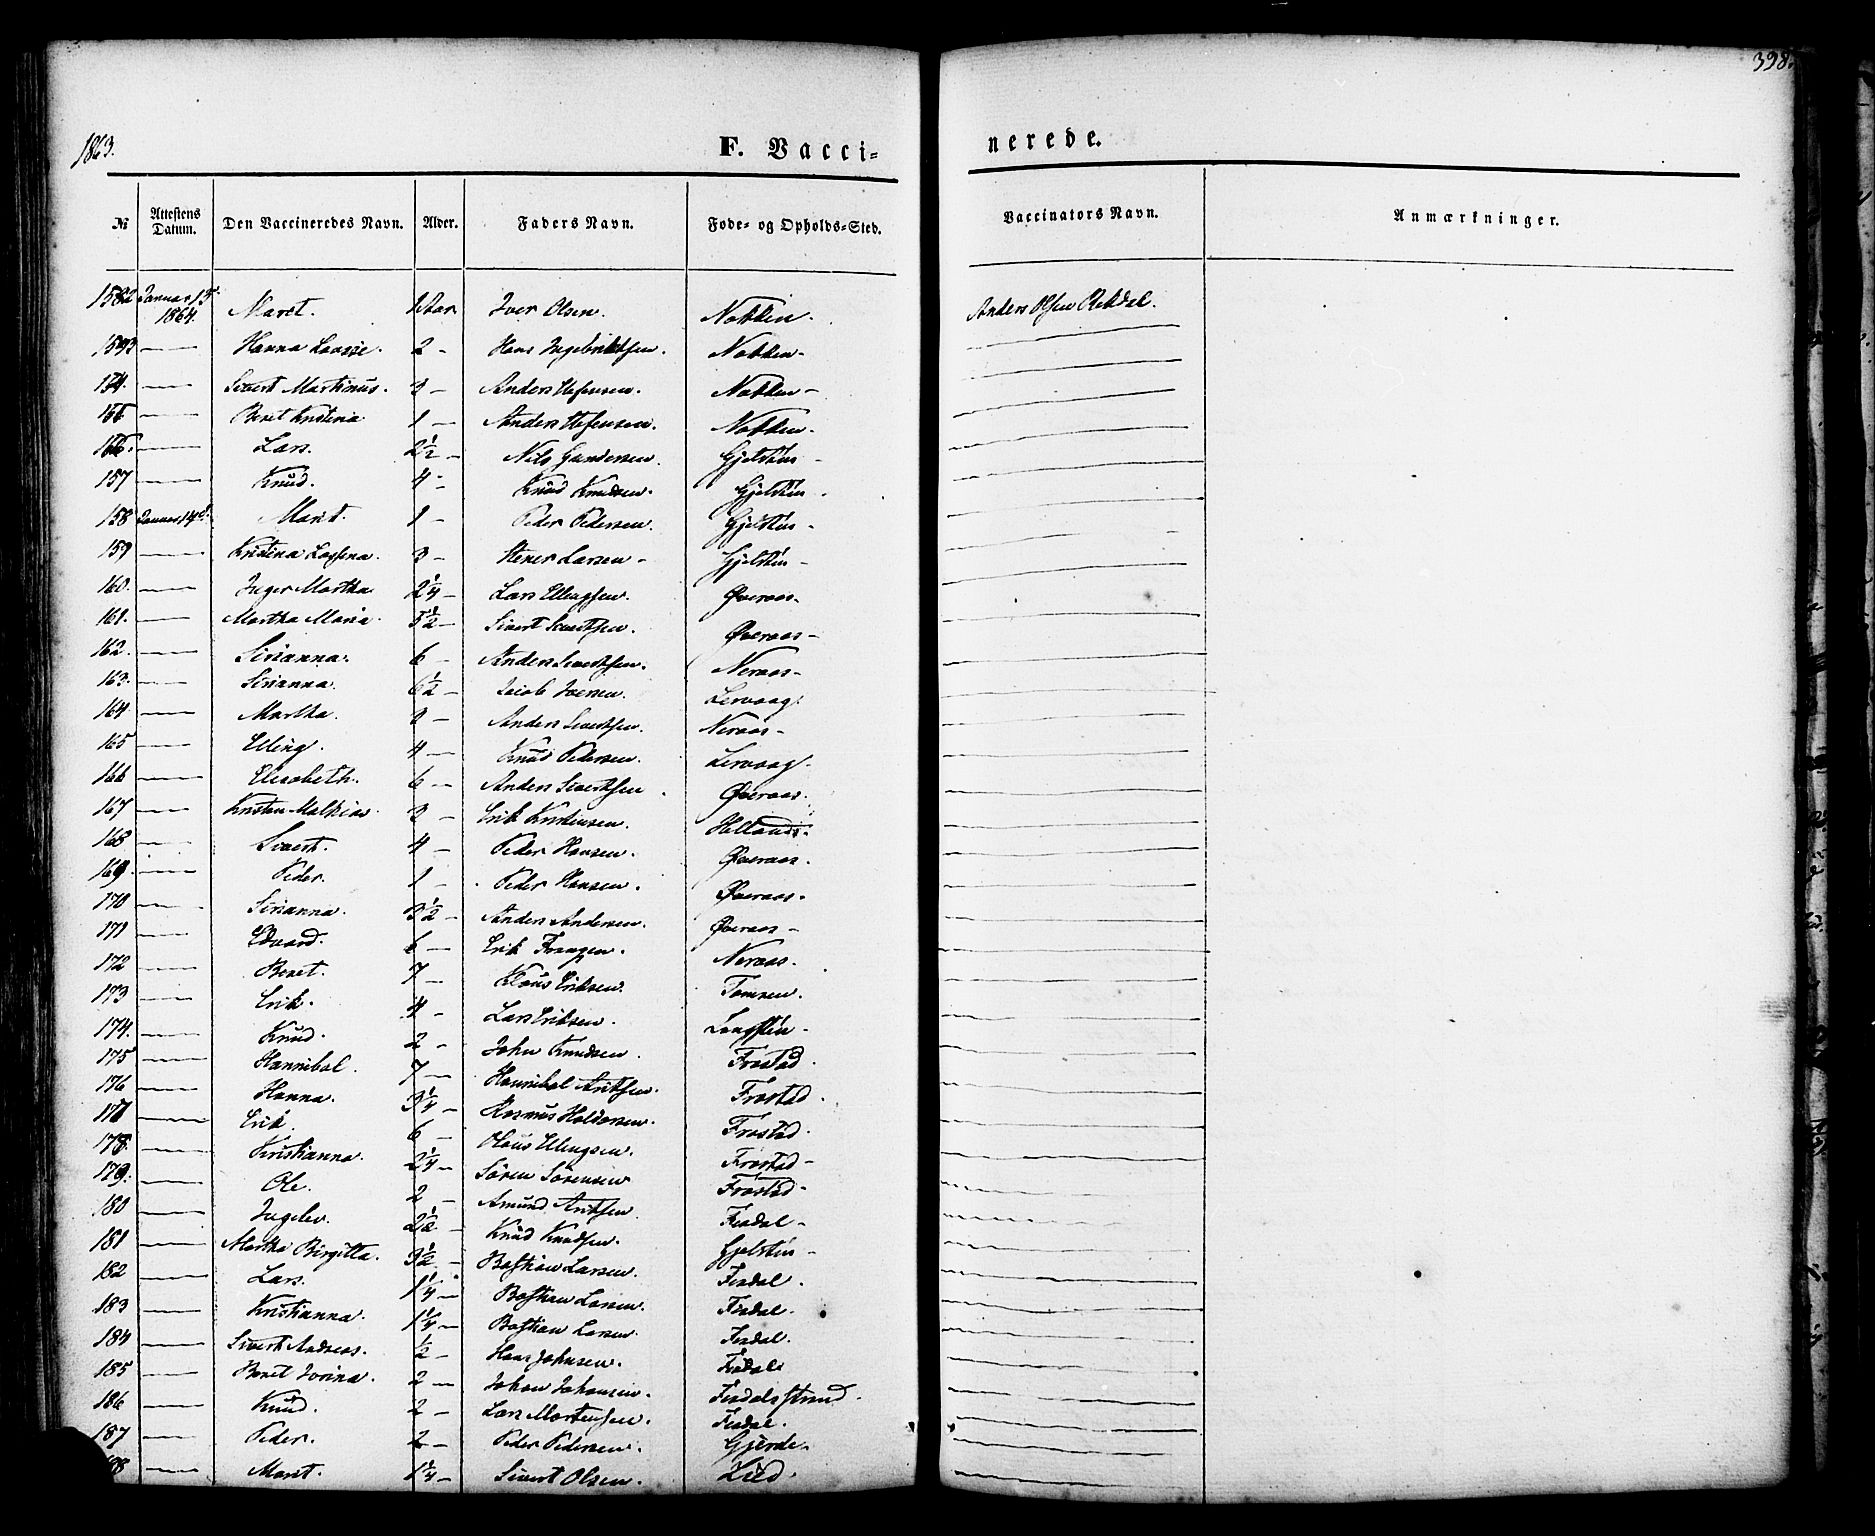 398.
1863.
F. Vacci-
nerede.
№ Attestens Datum. Den Vaccineredes Navn. Alder. Faders Navn. Føde- og Opholds-Sted. Vaccinators Navn. Anmærkninger.
Januar 13 1864. Maret. 1 Aar. Iver Olsen. Nakken. Anders Olsen Rekdal.
Hanna 2 - Hans Ingebriktsen. Nakken-
154. Sivert Martinus. 3 - Anders Nakken-
155 Beret Kristina 1 - Anders Nakken.
156. Lars. 2½ - Nils Gundersen. Gjelsten -
157 Knud. 4 - Knud Knudsen. Gjelsten -
158 Januar 14 Marit. 1 - Peder Pedersen. Gjelsten -
159 Kristina 3 - Stener Larsen - Gjelsten -
160. Inger Martha 2¼ - Lars Ellingsen. Øveraas-
161. Martha Maria 5½ - Sivert Sivertsen. Øveraas-
162. Sirianna. 6 - Anders Sivertsen. Neraas-
163. Sirianna. 6½ - Jacob Iversen. Lervaag.
164 Martha. 3 - Anders Sivertsen. Neraas-
165 Elling. 4 - Knud Pedersen. Lervaag.
166 Elisabeth. 6 - Anders Sivertsen. Øveraas.
167 Kristen Mathias. 3 - Erik Kristensen. Hellands.
168 Sivert. 4 - Peder Hansen. Øveraas.
169. Peder. 1 - Peder Hansen. Øveraas.
170 Sirianna. 3½ - Anders Andersen. Øveraas -
171 Edvard. 6 - Erik Neraas.
172 Beret. 7 - Klaus Eriksen. Tomren.
173 Erik. 4 - Lars Eriksen. Langsten-
174. Knud. 2 - John Knudsen. Frostad.
175 Hannibal. 7 - Hannibal Friostad.
176 Hanna. 3¼ - Rasmus Haldorsen. Frostad.
177 Erik. 6 - Olaus Ellingsen. Frostad-
178. Kristianna. 2¼ - Sören Sörensen Frostad-
179. Ole. 2 - Amund Fisdal-
180 Ingelev. 2½ - Knud Knudsen. Gjelsten -
181 Martha Birgitta. 3½ - Bastian Larsen. Fisdal.
182 Lars. 1¼ - Bastian Larsen. Fisdal.
183 Kristianna. 1¼ - Bastian Larsen Fisdal.
184 Sivert Andreas. ½ Hans Johnsen. Fisdal.
185 Beret Jorina. 2 - Johan Johansen. Fisdalsstrand.
186 Knud. 2 - Lars Mortensen. Fisdal.
187 Peder. 2 - Peder Pedersen. Gjerde.
188 Maret. 1¼ - Sivert Olsen. Lied.